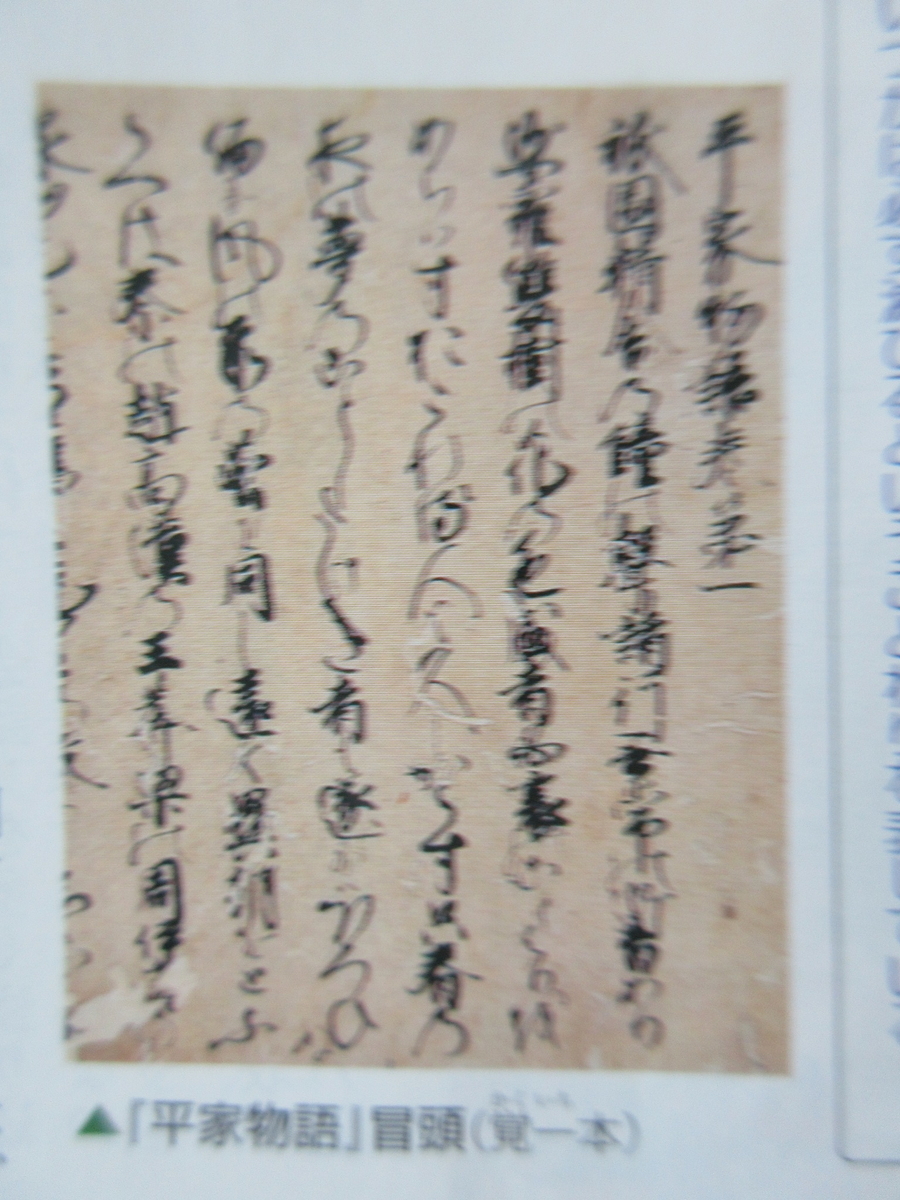 平家物語巻第一
祇園精舎の鐘の聲諸行無常の響あり
娑羅雙樹の花の色盛者必衰のことはりを
あらはすおこれる人も久しからす只春の
夜の夢のことしたけき者も遂にはほろひぬ
偏に風の前の塵に同し遠く異朝をとふ
らへは秦の趙高漢の王莽梁の周伊唐の
▲「平家物語」冒頭(覚一本)